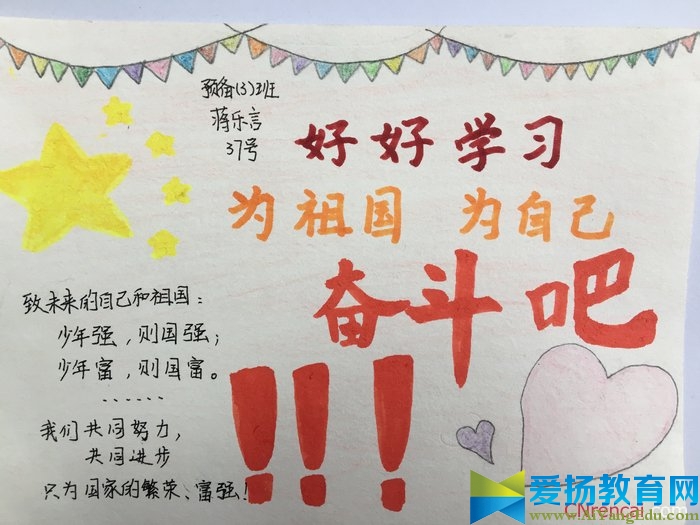 预备(3)班
蒋乐言
37号
好好学习
为祖国 为自己
奋斗吧
!!!
致未来的自己和祖国：
少年强，则国强；
少年富，则国富。
······
我们共同努力，
共同进步
只为国家的繁荣、富强！
爱扬教育网
AiYangEdu.com